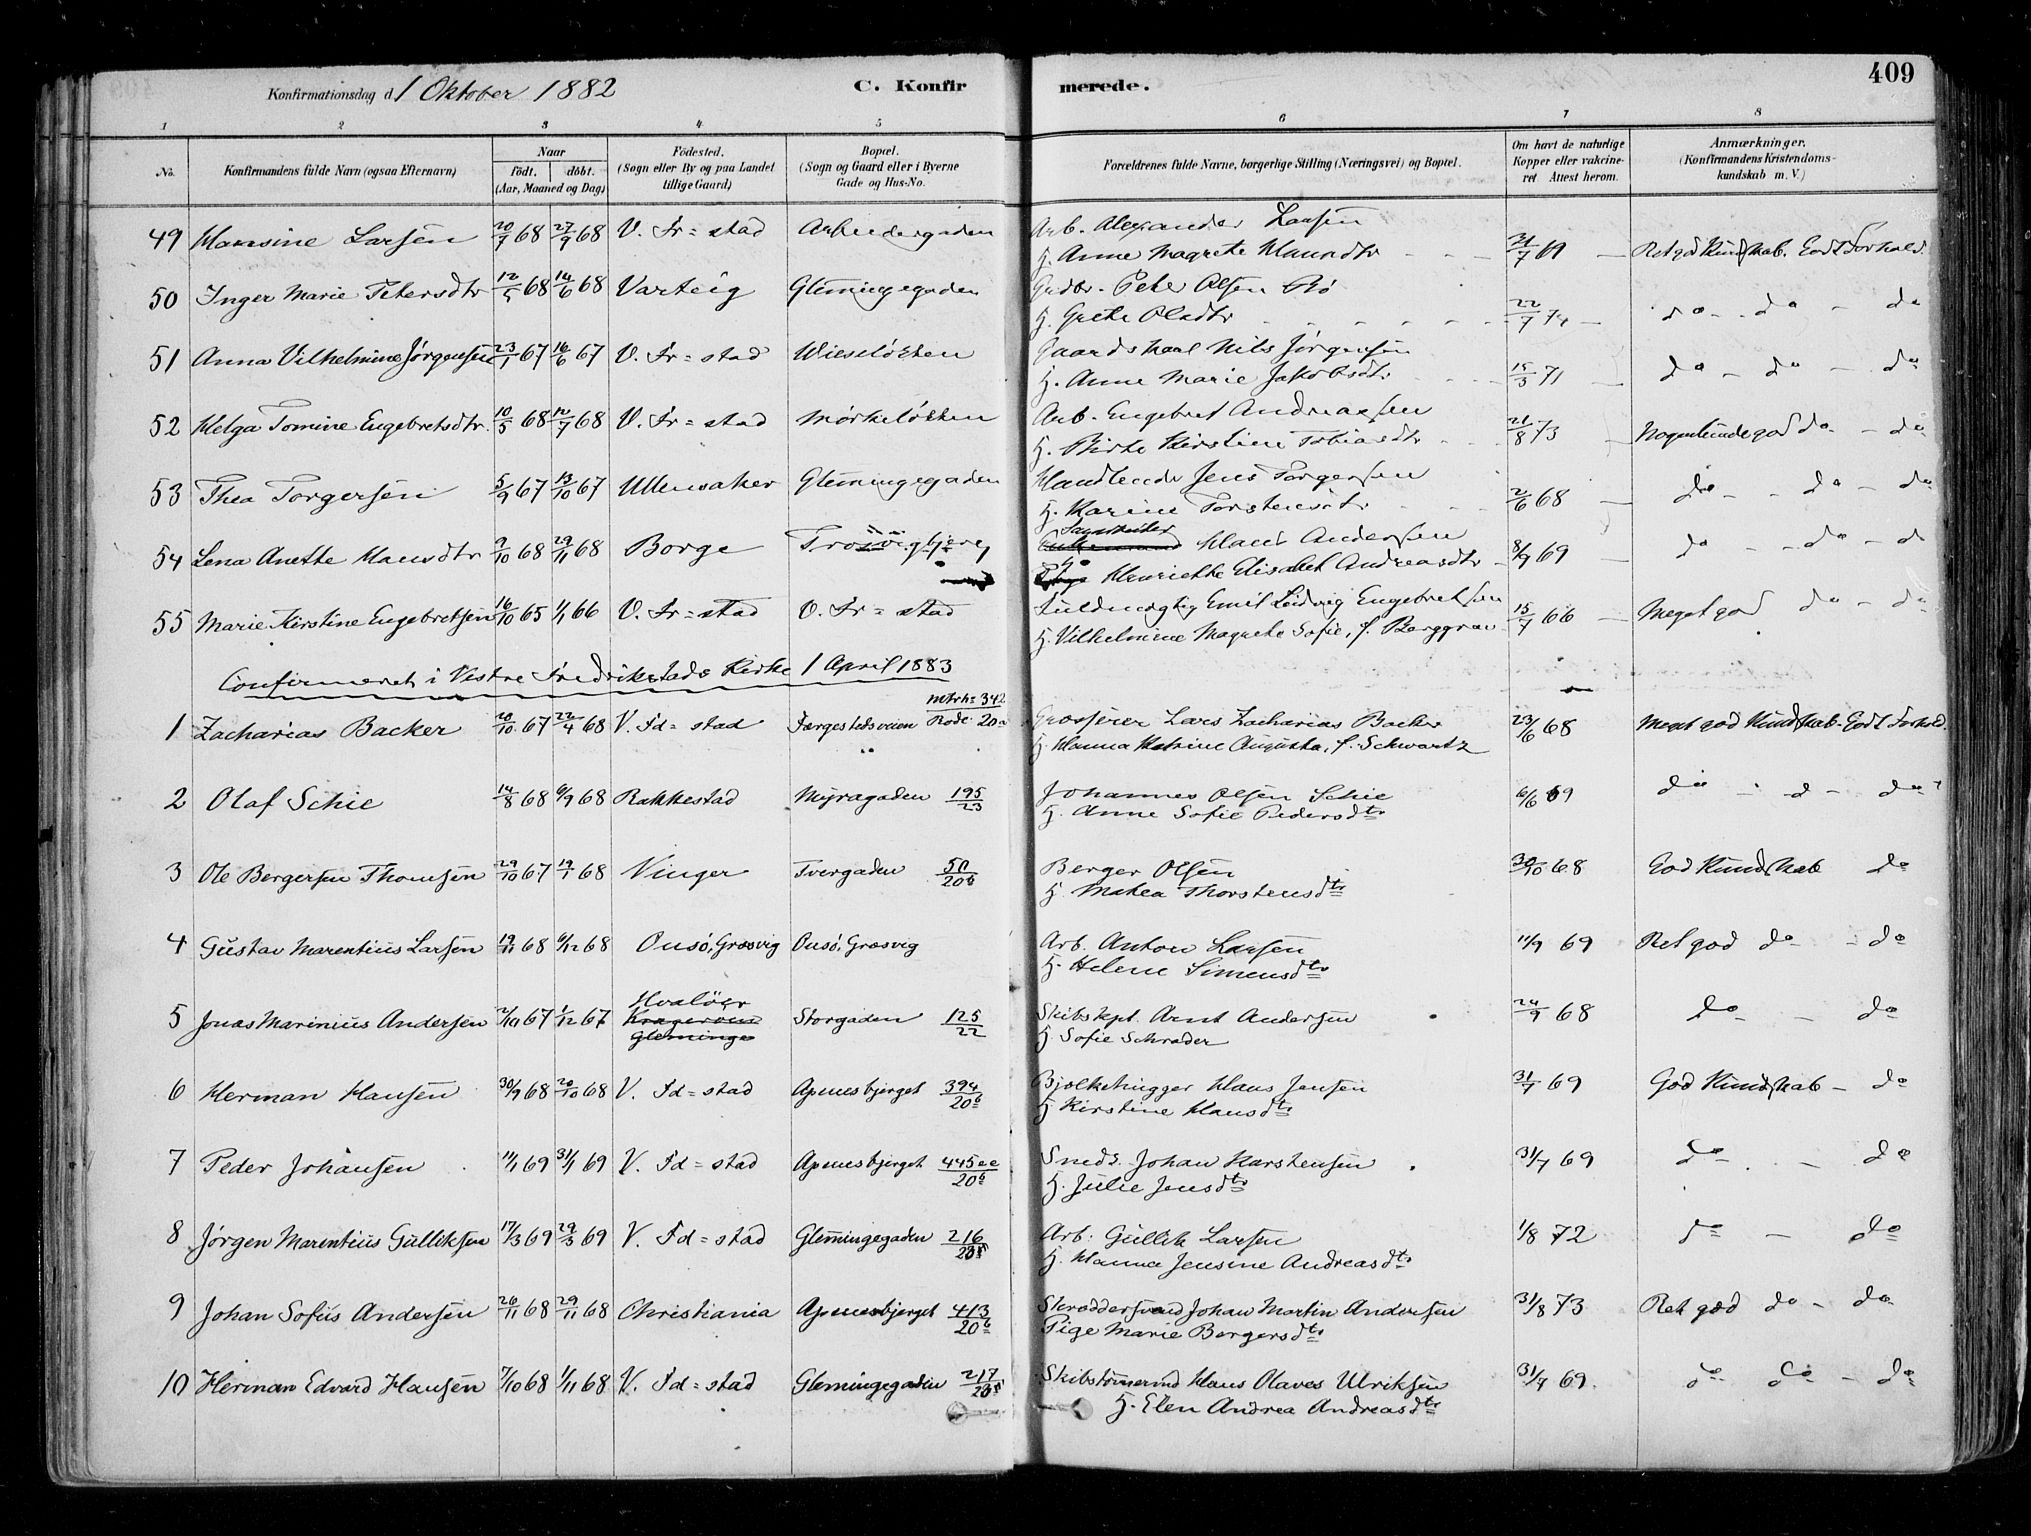 409
Konfirmationsdag d. 1 Oktober 1882 C. Konfirmerede.
1 2 3 4 5 6 7 8
No. Konfirmandens fulde Navn (ogsaa Efternavn) Naar født. døbt. (Aar, Maaned og Dag) Fødested. (Sogn eller By og paa Landet tillige Gaard) Bopæl. (Sogn og Gaard eller i Byerne Gade og Hus-No. Forældrenes fulde Navne, borgerlige Stilling (Næringsvei) og Bopæl. Om havt de naturlige Kopper eller vakcineret Attest herom. Anmærkninger. (Konfirmandens Kristendomskundskab m. V.)
49 Hansine Larsen 20/7 68 27/9 68 V. Fr=stad Arbeidergaden Arb. Alexander Larsen
H. Anne Magrete Hansdtr 31/7 69 Ret god Kundskab. Godt Forhold.
50 Inger Marie Petersdtr 12/5 68 14/6 68 Varteig Glemmingegaden Gedbr. Peter Olsen
H. Grete Olsdtr 22/7 74 do - do - do
51 Anna Vilhelmine Jørgensen 23/1 67 16/6 67 V. Fr=stad Wieseløkken Gaardskarl Nils Jørgensen
H. Anne Marie Jakobsdtr 15/3 71 do - do - do
52 Helga Tomine Engebretsdtr. 10/5 68 12/7 68 V. Fr=stad Mørkeløkken Arb. Engebret Andreassen
H. Birte Kirstine Tobiasdtr 21/8 73 Nogenlunde god do - do
53 Thea Torgersen 5/9 67 13/10 67 Ullensaker Glemmingegaden Handlende Jens Torgersen
H. Karine Torstensdtr 2/6 68 do - do - do
54 Lena Anette Hansdtr 9/10 68 29/11 68 Borge Trosvigbjerg Hans Andersen
H. Henriette Elisabet Andreasdtr 8/9 69 do - do - do
55 Marie Kirstine Engebretsen 16/10 65 1/1 66 V. Fr=stad V. Fr=stad Fuldmægtig Emil Ludvig Engebretsen
H. Vilhelmine Magrete Sofie, f. Berggrav 15/7 66 Meget god do - do
Confirmeret i Vestre Fredrikstads Kirke 1 April 1883
1 Zacharias Backer 20/10 67 22/4 68 V. Fd=stad Færgestedsveien Mtrk: 342 Rode: 20 Grosserer Lars Zacharias Backer
H. Hanna Katrine Augusta, f. Schwartz 23/6 68 Meget god Kundskab. Godt Forhold.
2 Olaf Schie 14/8 68 6/9 68 Rakkestad Myragaden 195/23 Johannes Olsen Schie
H. Anne Sofie Pedersdtr 6/6 69 do - do - do
3 Ole Bergersen Thomsen 29/10 67 19/1 68 Vinger Tvergaden 50/20b Berger Olsen
H. Mathea Thorstensdtr 30/10 68 God Kundskab do
4 Gustav Marentius Larsen 19/11 68 6/12 68 Onsø, Græsvig Onsø, Græsvig Arb. Anton Larsen
H. Helene Simensdtr 11/9 69 Ret god do - do
5 Jonas Marinius Andersen 2/10 67 1/12 67 Hvaløer Kragerøen Glemminge Storgaden 125/22 Skibskpt. Arnt Andersen
H. Sofie Schrader 24/9 68 do - do
6 Herman Hansen 30/9 68 20/10 68 V. Fd=stad Apenesbjerget 394/20b Bjelkehugger Hans Jensen
H. Kirstine Hansdtr 31/7 69 God Kundskab - do
7 Peder Johansen 11/1 69 31/1 69 V. Fd=stad Apenesbjerget 445ee/20b Snedk. Johan Karstensen
H. Julie Jensdtr 31/7 69 do - do
8 Jørgen Marentius Gulliksen 17/3 69 29/3 69 V. Fd=stad Glemmingegaden 216/23 Arb. Gullik Larsen
H. Hanna Jensine Andreasdtr 1/8 72 do - do
9 Johan Sofus Andersen 26/11 68 29/11 68 Christiania Apenesbjerget 413/20b Skræddersvend Johan Martin Andersen
Pige Marie Bergersdtr 31/8 73 Ret god do - do
10 Herman Edvard Hansen 7/10 68 1/11 68 V. Fd=stad Glemingegaden 217/23 Skibstømmermd Hans Olaves Ulriksen
H. Elen Andrea Andreasdtr 31/7 69. do do - do